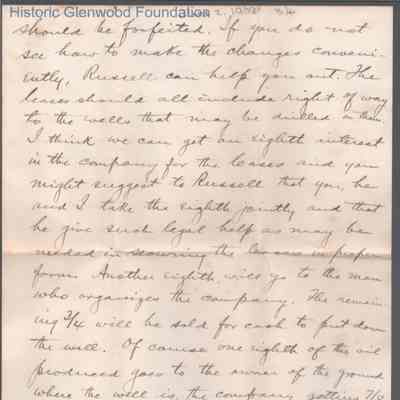 Historic Glenwood Foundation
should be forfeited. If you do not
see how to make the changes conveni-
ently, Russell can help you out. The
leases should all include right of way
to the wells that may be drilled on them.
I think we can get an eighth interest
in the company for the leases and you
might suggest to Russell that you, he
and I take the eighth jointly and that
he give such legal help as may be
needed in securing the leases in proper
form. Another eighth will go to the man
who organizes the company. The remain-
ing 3/4 will be sold for cash to put down
the well. Of course one eighth of the oil
produced goes to the owner of the ground
where the well is, the company getting 7/8